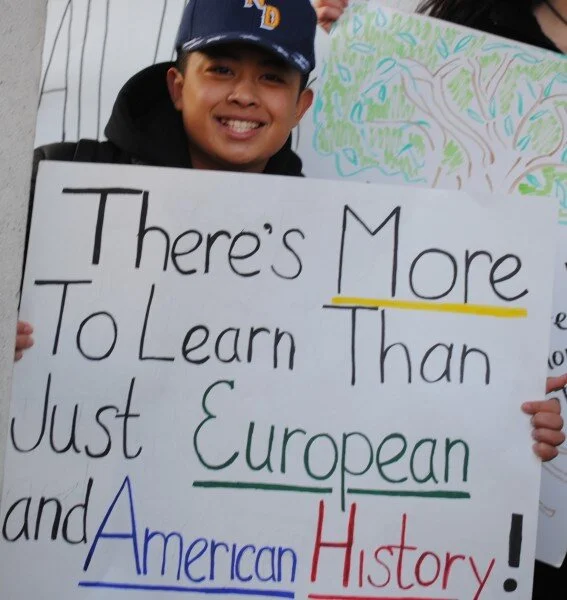 ND
There's More
To Learn Than
Just European
and American History!